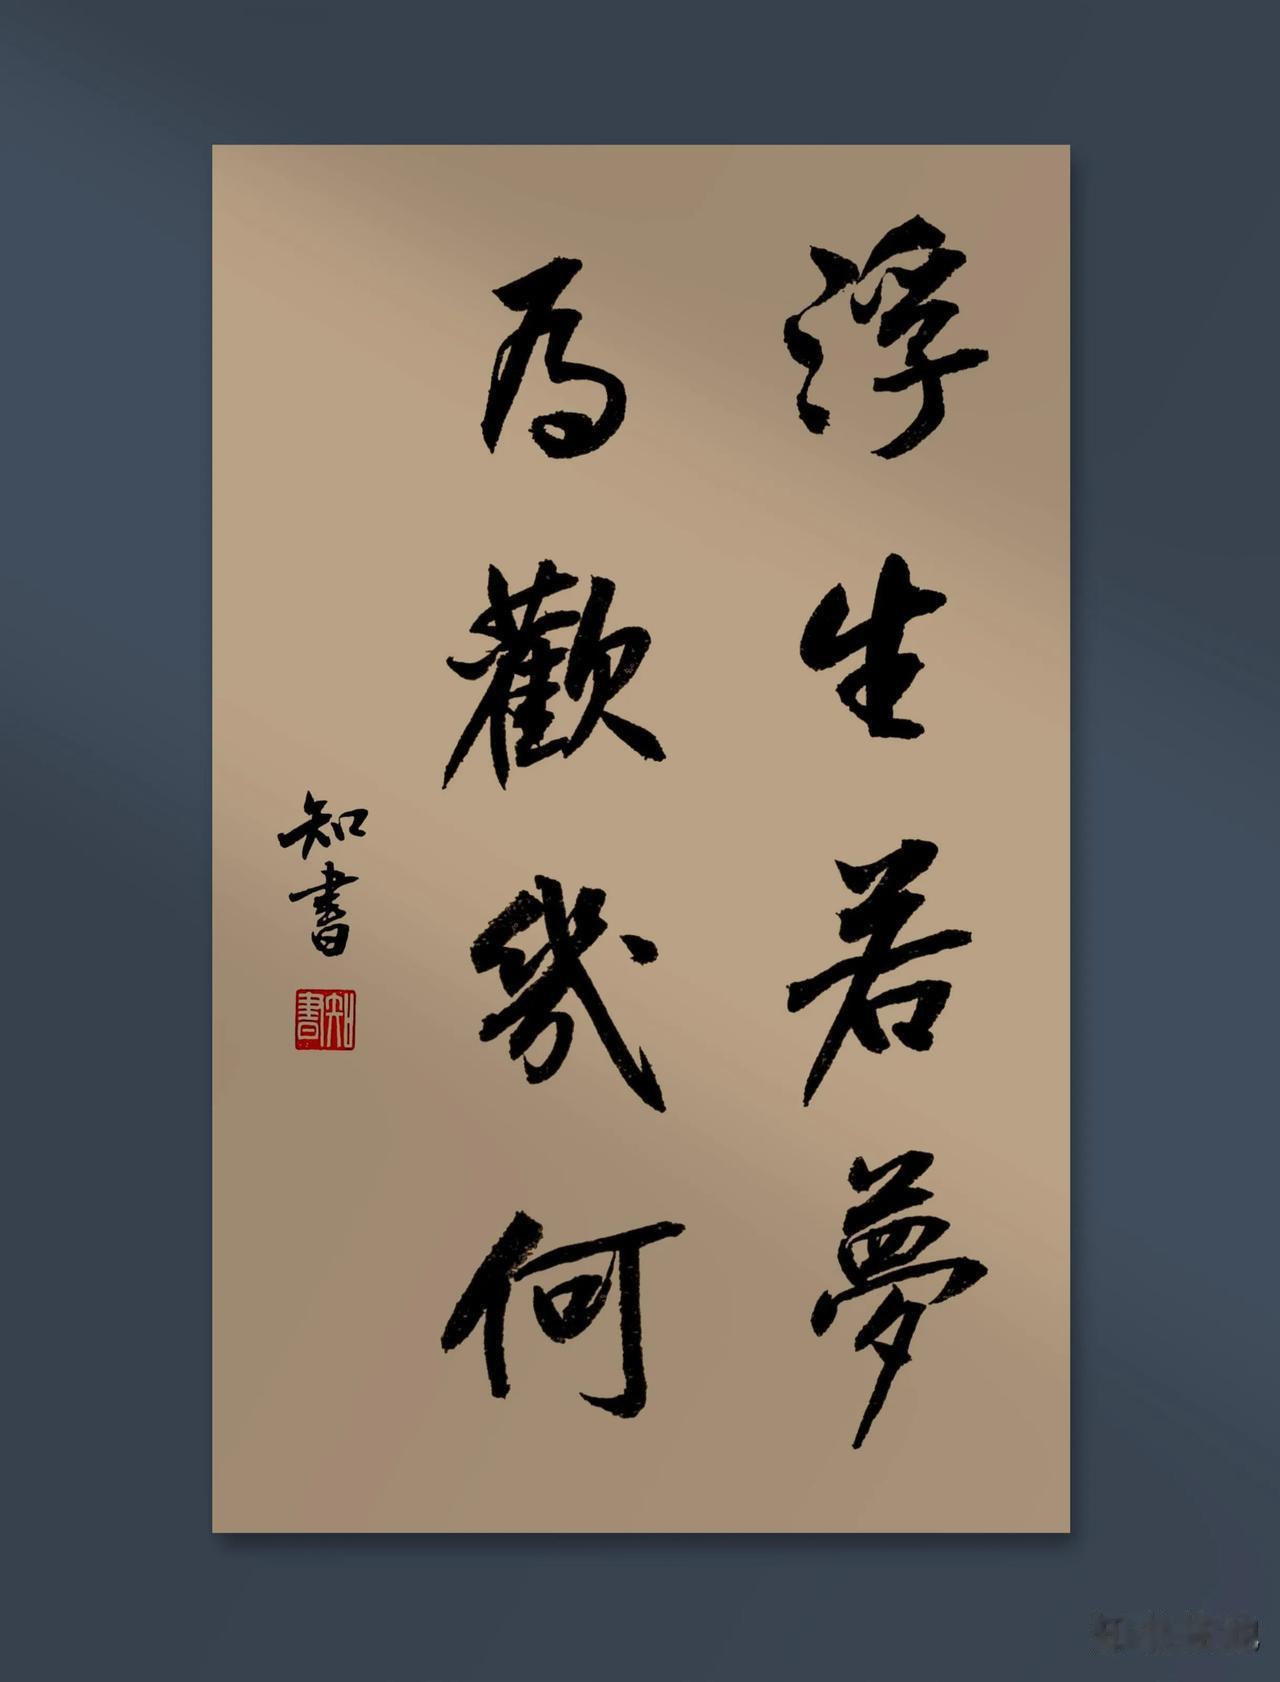 浮生若夢
為歡幾何
知書
知書